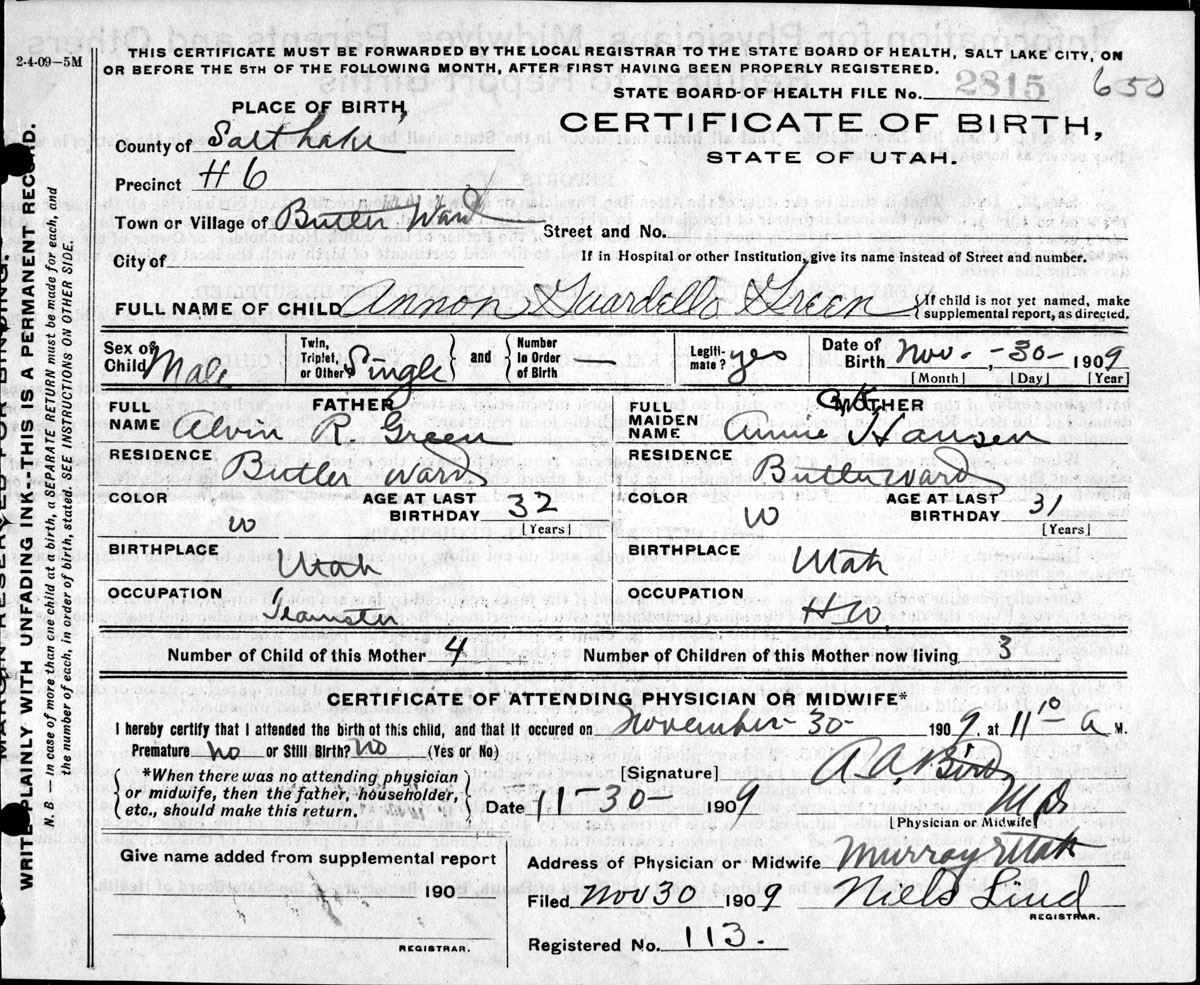 2-4-09—5M
THIS CERTIFICATE MUST BE FORWARDED BY THE LOCAL REGISTRAR TO THE STATE BOARD OF HEALTH, SALT LAKE CITY, ON
OR BEFORE THE 5TH OF THE FOLLOWING MONTH, AFTER FIRST HAVING BEEN PROPERLY REGISTERED.
STATE BOARD OF HEALTH FILE No. 2815 650
PLACE OF BIRTH,
CERTIFICATE OF BIRTH,
STATE OF UTAH.
County of Salt Lake
Precinct #6
Town or Village of Butler Ward
Street and No.
City of
If in Hospital or other Institution, give its name instead of Street and number.
FULL NAME OF CHILD Annon Guardello Green {If child is not yet named, make
supplemental report, as directed.
Sex of Child Male
Twin, Triplet, or Other? Single } and { Number in Order of Birth —
Legiti-mate? yes
Date of Birth Nov. - 30 - 1909
[Month] [Day] [Year]
FATHER
FULL NAME Alvin R. Green
RESIDENCE Butler Ward
COLOR W
AGE AT LAST BIRTHDAY 32 [Years]
BIRTHPLACE Utah
OCCUPATION Teamster
MOTHER
FULL MAIDEN NAME Annie Hansen
RESIDENCE Butler Ward
COLOR W
AGE AT LAST BIRTHDAY 31 [Years]
BIRTHPLACE Utah
OCCUPATION H.W.
Number of Child of this Mother 4 Number of Children of this Mother now living 3
CERTIFICATE OF ATTENDING PHYSICIAN OR MIDWIFE*
I hereby certify that I attended the birth of this child, and that it occured on November 30 - 1909, at 11 10 a M.
Premature no or Still Birth? no (Yes or No)
*When there was no attending physician
or midwife, then the father, householder,
etc., should make this return.
[Signature] A. A. Bird
M D
Date 11-30- 1909
[Physician or Midwife]
Give name added from supplemental report
190
REGISTRAR.
Address of Physician or Midwife Murray Utah
Filed Nov 30 1909 Niels Lind
REGISTRAR.
Registered No. 113.
MARGIN RESERVED FOR BINDING.
WRITE PLAINLY WITH UNFADING INK—THIS IS A PERMANENT RECORD.
N. B. — In case of more than one child at birth, a SEPARATE RETURN must be made for each, and
the number of each, in order of birth, stated. SEE INSTRUCTIONS ON OTHER SIDE.